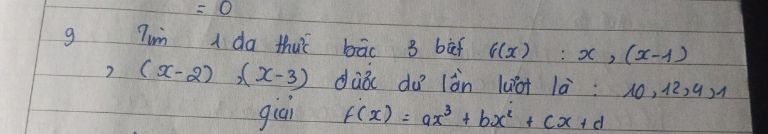 = 0
9 Tìm 1 đa thức bậc 3 biết f(x) : x, (x-1)
, (x-2), (x-3) được dư lần lượt là : 10, 12, 4, 1
giải f(x) = ax³ + bx² + cx + d